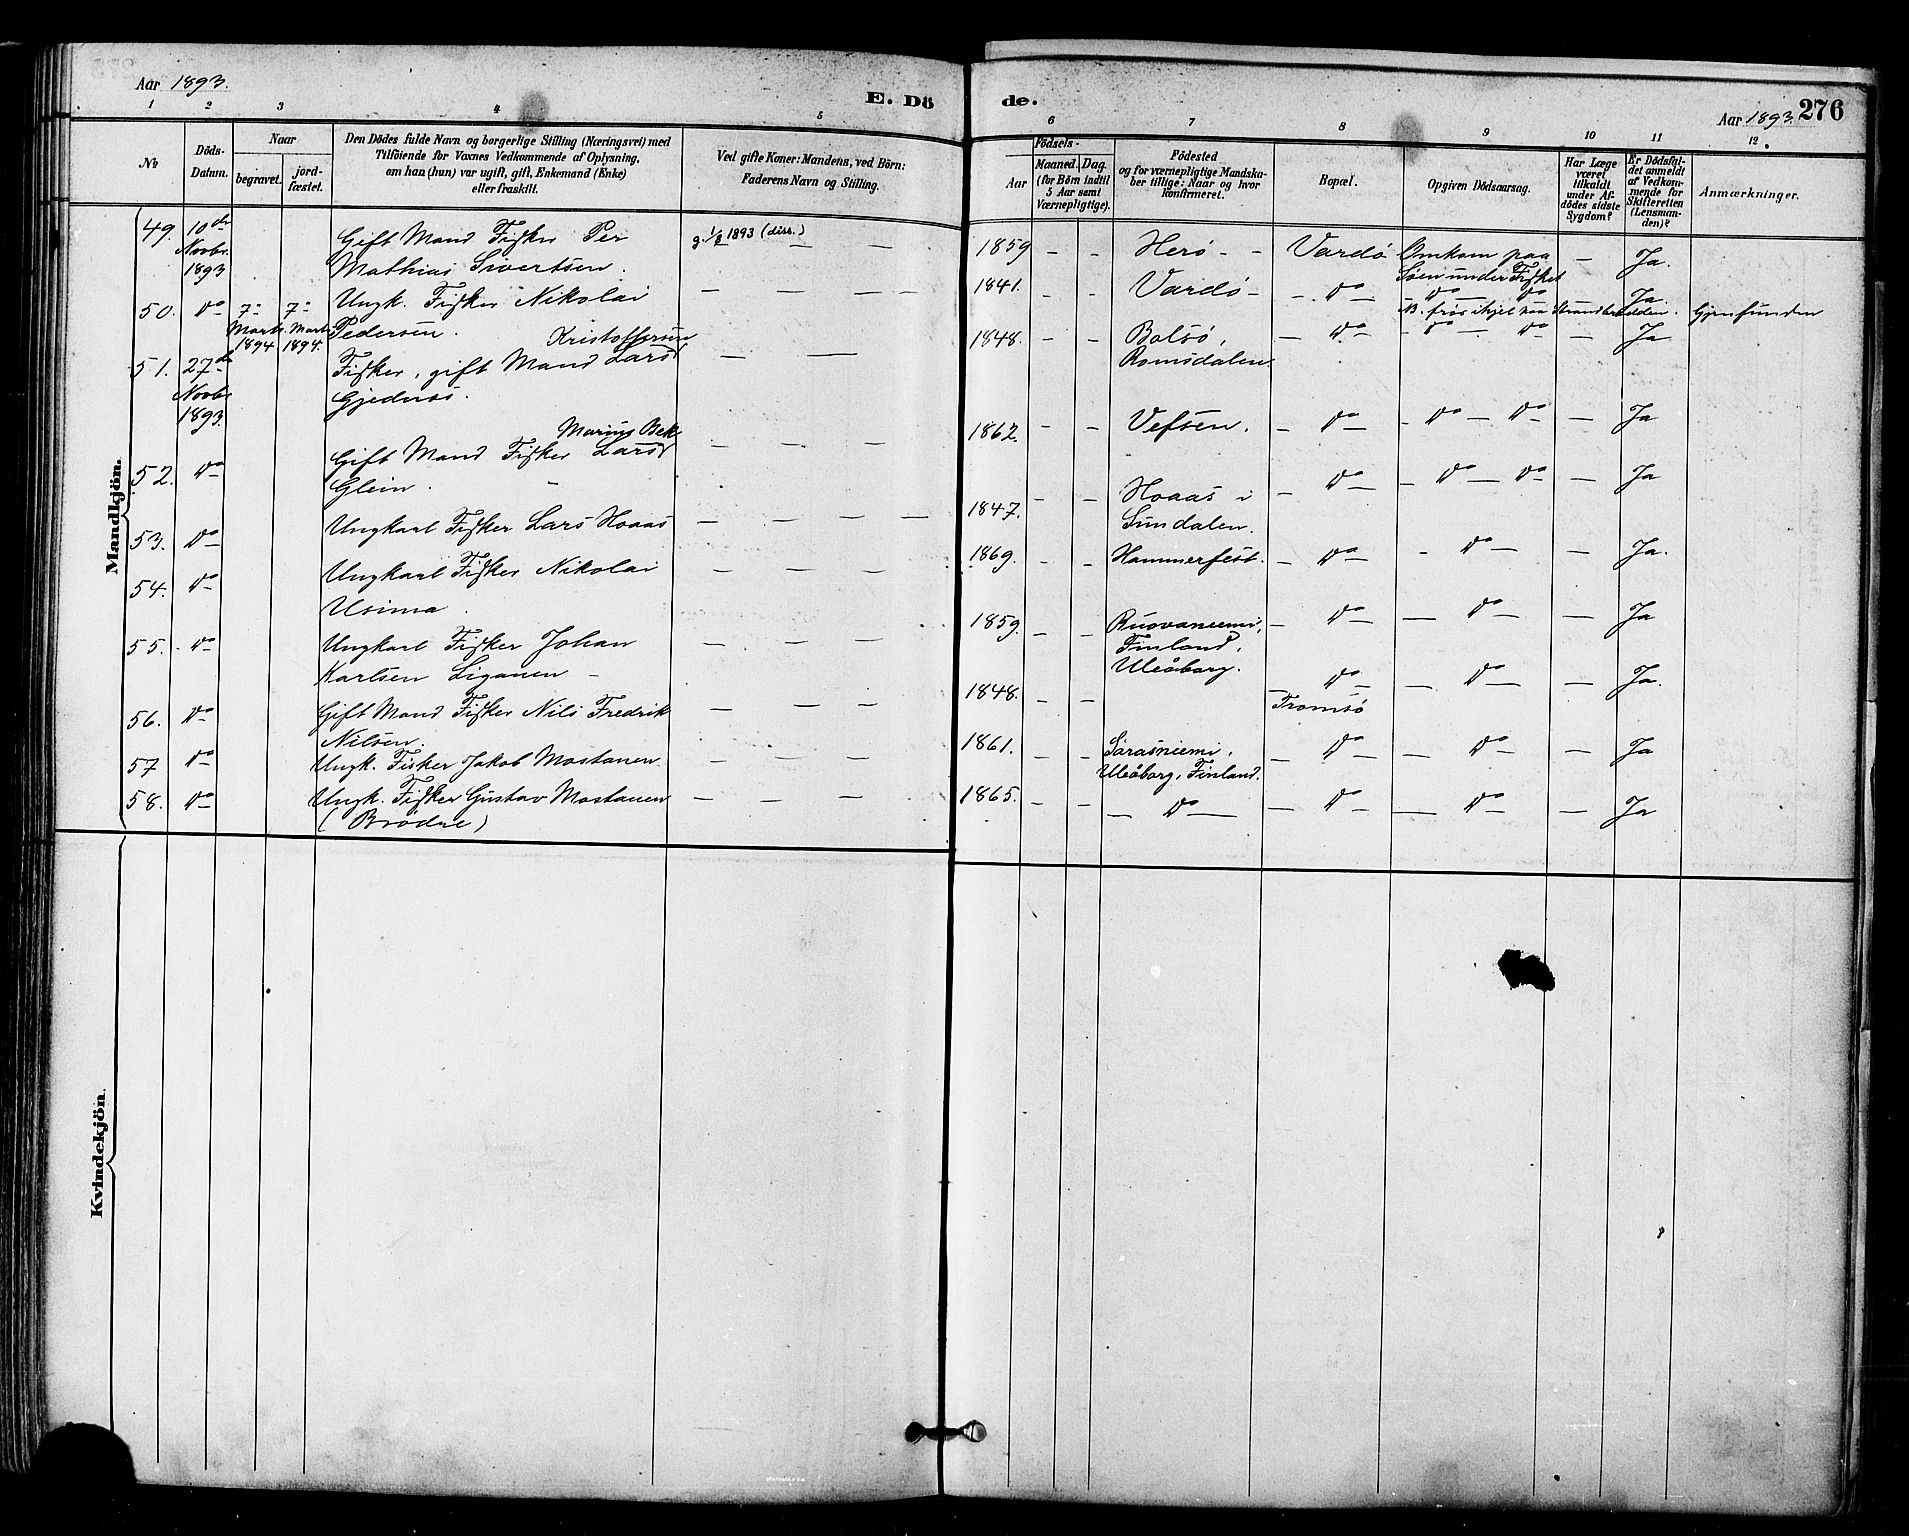 Aar 1893.
E. Dö
de.
Aar 1893. 276
1 2 3 4 5
6 7 8 9 10 11 12.
No
Döds-
Datum.
Naar
begravet. jord-
fæstet.
Den Dödes fulde Navn og borgerlige Stilling (Næringsvei) med
Tilföiende for Voxnes Vedkommende af Oplysning,
om han (hun) var ugift, gift, Enkemand (Enke)
eller fraskilt.
Ved gifte Koner: Mandens, ved Börn:
Faderens Navn og Stilling.
Födsels-
Aar
Maaned. Dag.
(for Börn indtil
5 Aar samt
Værnepligtige).
Födested
og for værnepligtige Mandska-
ber tillige: Naar og hvor
konfirmeret.
Bopæl.
Opgiven Dödsaarsag.
Har Læge
været
tilkaldt
under Af-
dödes sidste
Sygdom?
Er Dödsfal-
det anmeldt
af Vedkom-
mende for
Skifteretten
(Lensman-
den)?
Anmærkninger.
Mandkjön.
49. 10de Novbr. 1893 Gift Mand Fisker Per
Mathias Sivertsen. g. 1/8 1893 (diss.) — — 1859 - - Herö - - Vardö Omkom paa
Söen under Fisket — Ja.
50. do 7- Marts 1894 7- Marts 1894. Ungk. Fisker Nikolai
Pedersen. — — — — 1841. - - Vardö - - do - - do — do Ja.
N. frös ihjel paa Strandbredden. Gjenfunden
51. 27de Novbr. 1893. Kristoffersen
Fisker, gift Mand Lars
Gjednæs. — — 1848. - - Bolsö,
Romsdalen. - do - - do - do - Ja
52. do Marius Bek
Gift Mand Fisker Lars
Glein. — — — 1862. - - Vefsen. - do - - do — do - Ja
53. do Ungkarl Fisker Lars Hoaas — — — — 1847. - - Hoaas i
Sundalen. - do - - do — do — Ja
54. do Ungkarl Fisker Nikolai
Usima. — — — 1869. - - Hammerfest. - do - - do — — Ja.
55. do Ungkarl Fisker Johan
Karlsen Liganen — — — — 1859. - - Ruovaniemi,
Finland,
Uleåborg. - do — — do — — Ja
56. do Gift Mand Fisker Nils Fredrik
Nilsen. — — — 1848. - - do
Tromsö — do — — Ja.
57 do Ungk. Fisker Jakob Mostanen. — — — 1861. - - Saræsniemi,
Uleåborg, Finland. - do - — do — — Ja
58. do Ungk. Fisker Gustav Mostanen
(Brödre) — — — — 1865. - - — do — - do - — do — — Ja
Kvindekjön.